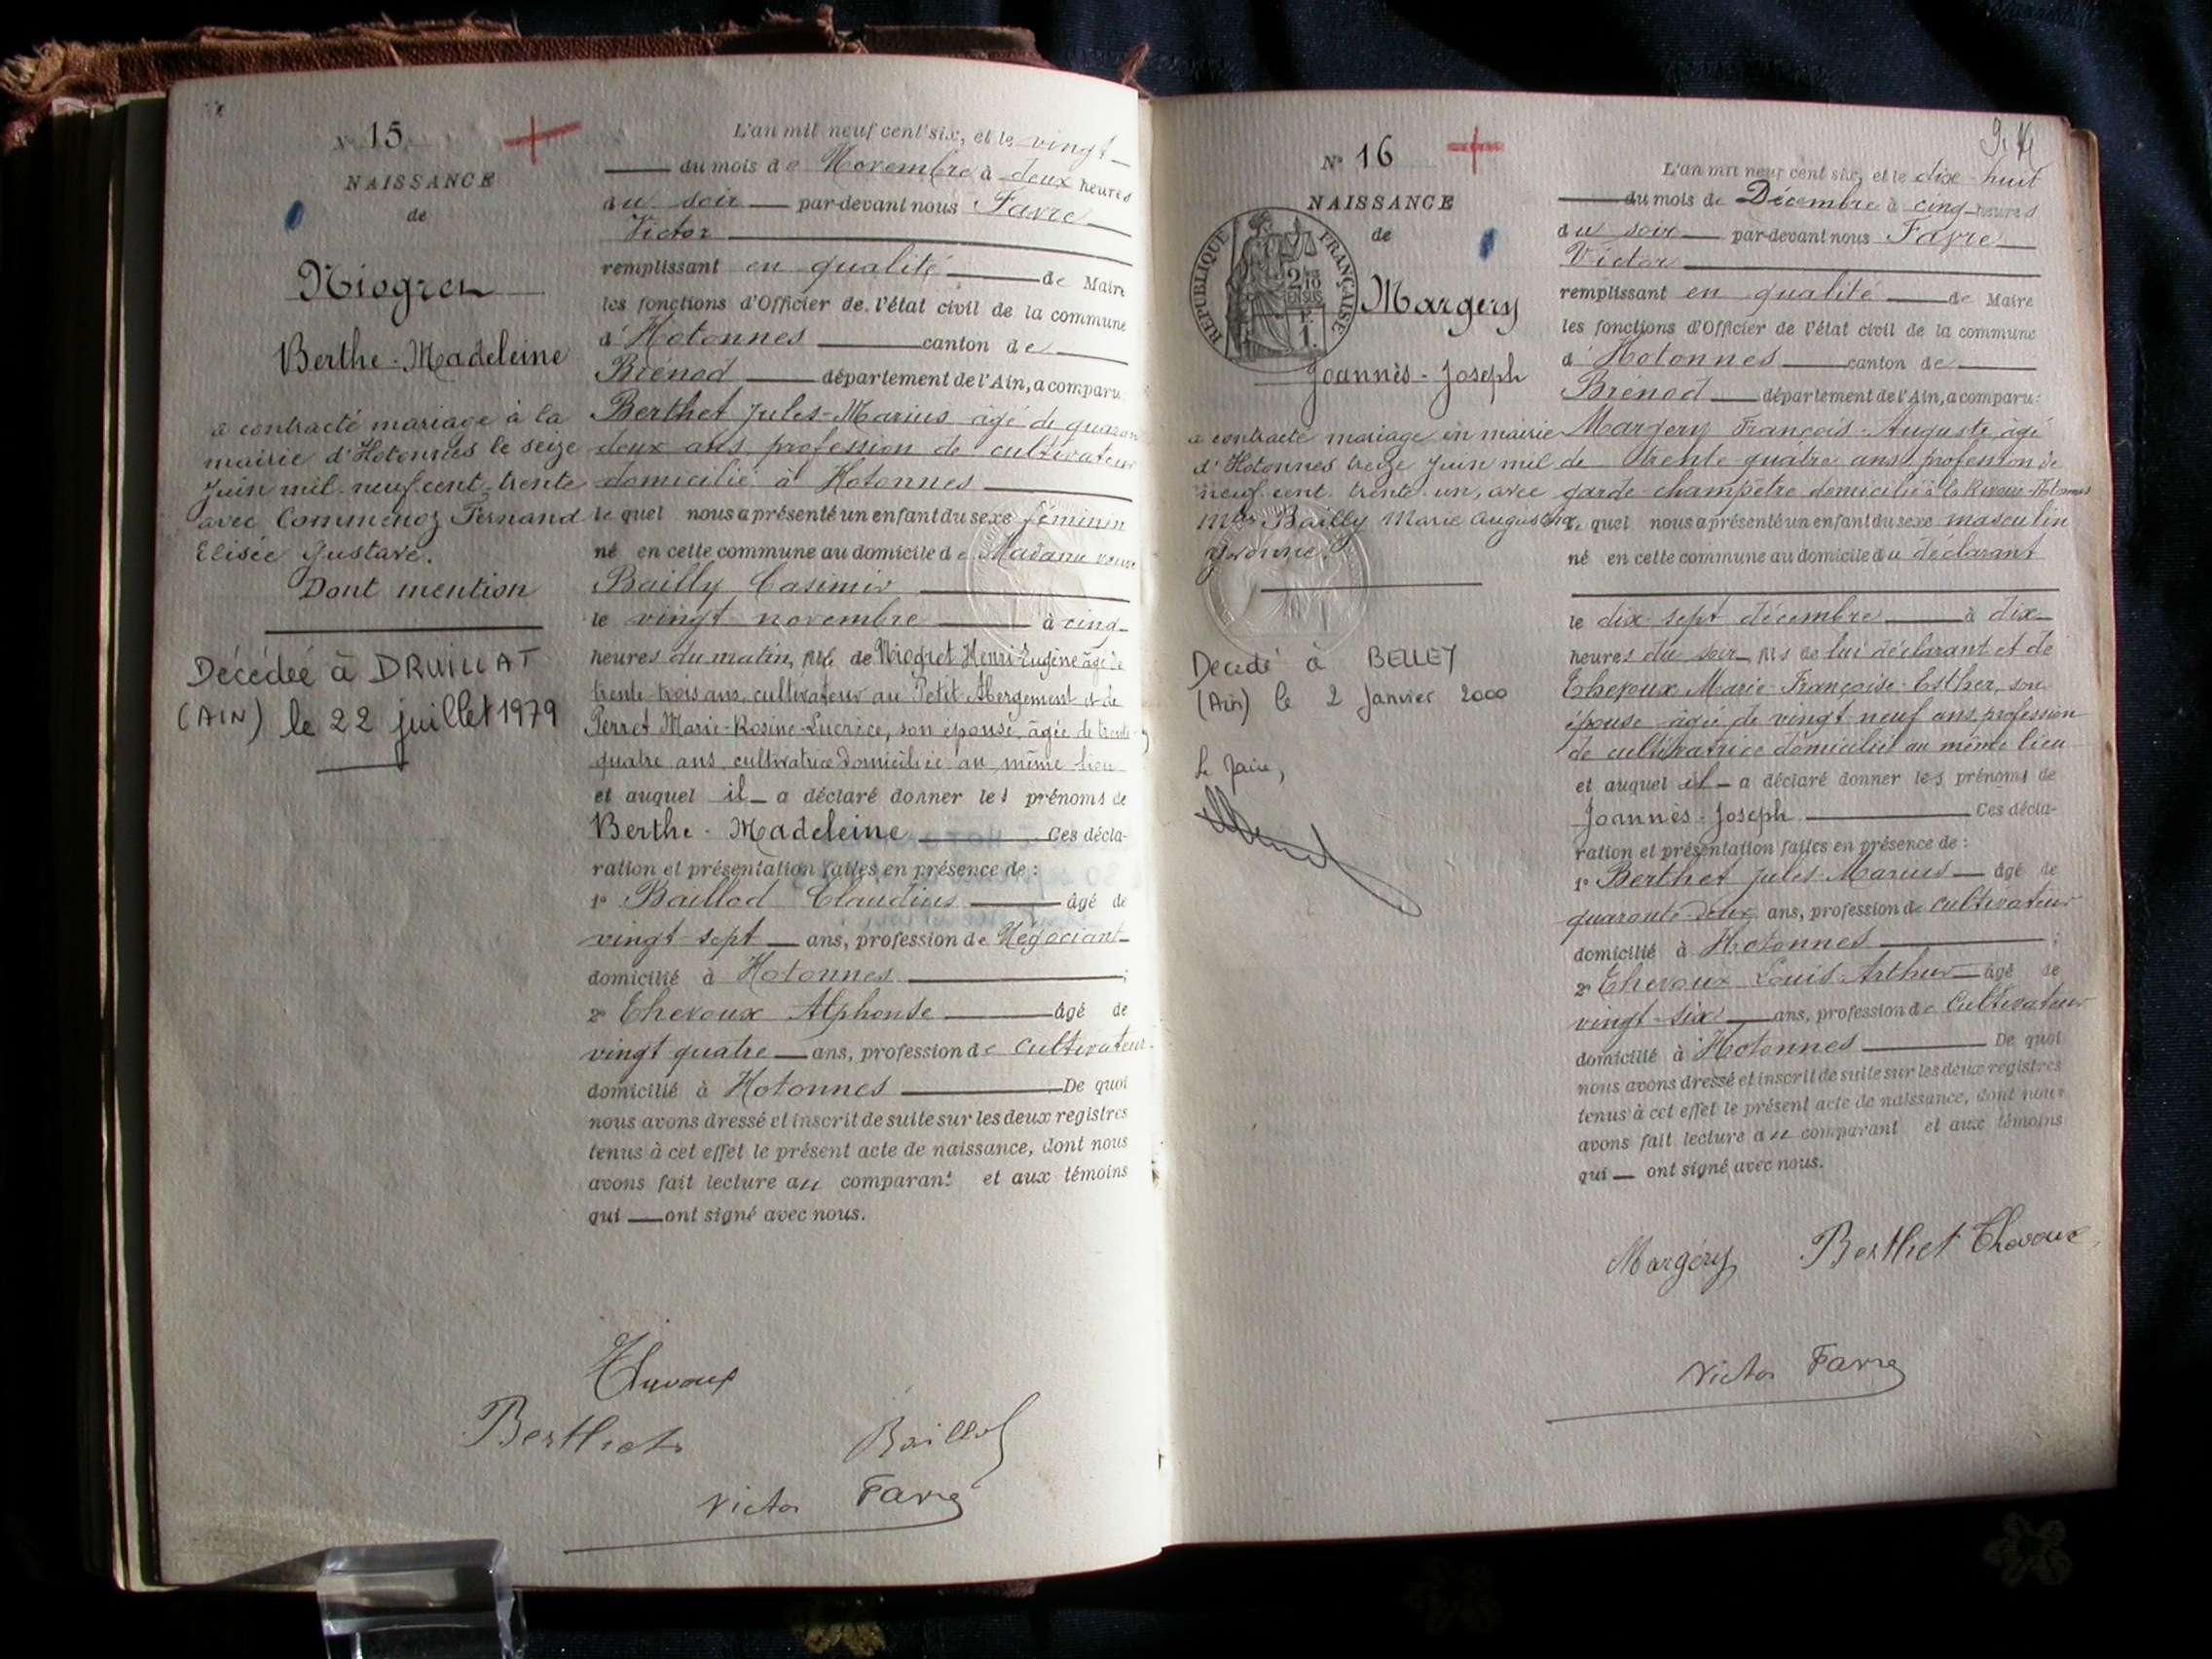 N° 15
NAISSANCE
de
Niogret
Berthe-Madeleine
a contracté mariage à la
mairie d'Hotonnes le seize
Juin mil-neuf cent-trente
avec Commenoz Fernand
Elisée Gustave.
Dont mention
Décédée à DRUILLAT
(AIN) le 22 juillet 1979
L'an mil neuf cent six, et le vingt
du mois de Novembre à deux heures
du soir par-devant nous Favre
Victor
remplissant en qualité de Maire
les fonctions d'Officier de l'état civil de la commune
d'Hotonnes canton de
Brénod département de l'Ain, a comparu
Berthet Jules-Marius âgé de quaran
deux ans profession de cultivateur
domicilié à Hotonnes
le quel nous a présenté un enfant du sexe féminin
né en cette commune au domicile de Madame veuve
Bailly Casimir
le vingt novembre à cinq
heures du matin, fille de Niogret Henri Eugène âgé de
trente-trois ans, cultivateur au Petit Abergement et de
Perret Marie-Rosine-Lucrice, son épouse, âgée de trente
quatre ans cultivatrice domiciliée au même lieu
et auquel il a déclaré donner les prénoms de
Berthe-Madeleine Ces décla-
ration et présentation faites en présence de :
1° Baillod Claudius âgé de
vingt sept ans, profession de Négociant
domicilié à Hotonnes ;
2° Chevoux Alphonse âgé de
vingt quatre ans, profession de cultivateur
domicilié à Hotonnes De quoi
nous avons dressé et inscrit de suite sur les deux registres
tenus à cet effet le présent acte de naissance, dont nous
avons fait lecture au comparant et aux témoins
qui ont signé avec nous.
Chevoux
Berthet Baillod
Victor Favre
N° 16
NAISSANCE
de
REPUBLIQUE FRANÇAISE
2/10
EN SUS
1 F.
Margery
Joannès-Joseph
a contracté mariage en mairie
d'Hotonnes treize Juin mil
neuf cent trente-un, avec
Mlle Bailly Marie Augustine
Yvonne.
Décédé à BELLEY
(Ain) le 2 Janvier 2000
Le Maire,
L'an mil neuf cent six, et le dix huit
du mois de Décembre à cinq heures
du soir par-devant nous Favre
Victor
remplissant en qualité de Maire
les fonctions d'Officier de l'état civil de la commune
d'Hotonnes canton de
Brenod département de l'Ain, a comparu :
Margery François-Auguste âgé
de trente quatre ans profession de
garde-champêtre domicilié à la Hotonnes
le quel nous a présenté un enfant du sexe masculin
né en cette commune au domicile du déclarant
le dix sept décembre à dix
heures du soir fils de lui déclarant et de
Chevoux Marie-Françoise-Esther, son
épouse âgée de vingt neuf ans, profession
de cultivatrice domiciliée au même lieu
et auquel il a déclaré donner les prénoms de
Joannès-Joseph Ces décla-
ration et présentation faites en présence de :
1° Berthet Jules-Marius âgé de
quarante-deux ans, profession de cultivateur
domicilié à Hotonnes ;
2° Chevoux Louis Arthur âgé de
vingt-six ans, profession de cultivateur
domicilié à Hotonnes De quoi
nous avons dressé et inscrit de suite sur les deux registres
tenus à cet effet le présent acte de naissance, dont nous
avons fait lecture au comparant et aux témoins
qui ont signé avec nous.
Margery Berthet Chevoux
Victor Favre